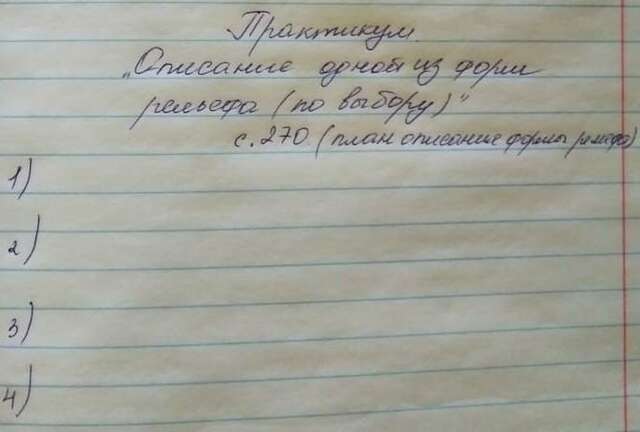 Практикум.
"Описание одной из форм
рельефа (по выбору)"
с.270. (план описание формы рельефа)
1)
2)
3)
4)